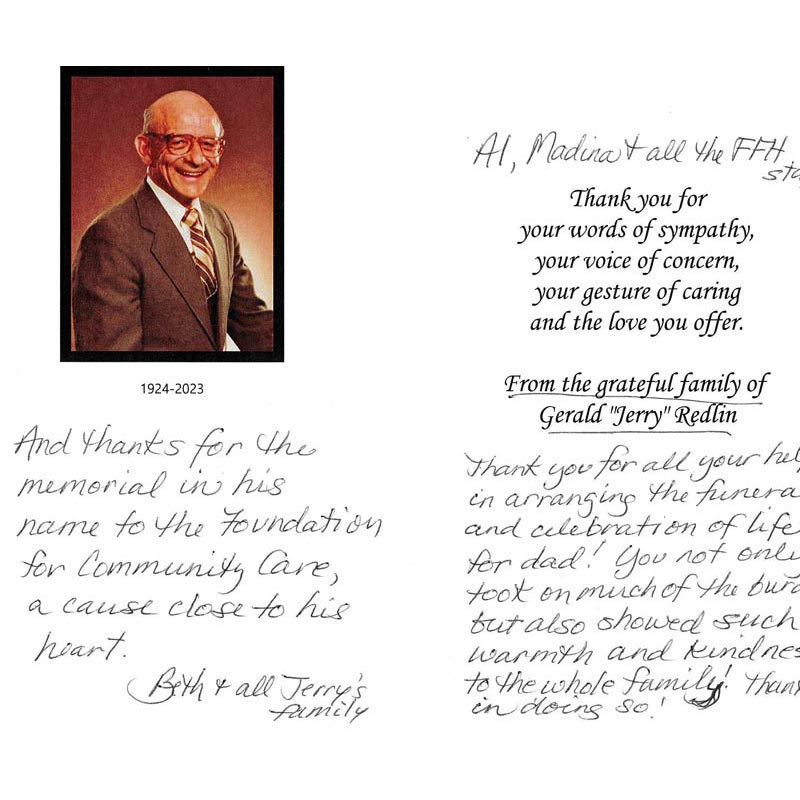 1924-2023
And thanks for the
memorial in his
name to the Foundation
for Community Care,
a cause close to his
heart.
Beth & all Jerry's
family
Al, Madina & all the FFH
Thank you for
your words of sympathy,
your voice of concern,
your gesture of caring
and the love you offer.
From the grateful family of
Gerald "Jerry" Redlin
Thank you for all your hel
in arranging the funera
and celebration of life
for dad! You not only
took on much of the burd
but also showed such
warmth and kindnes
to the whole family! Thank
in doing so!